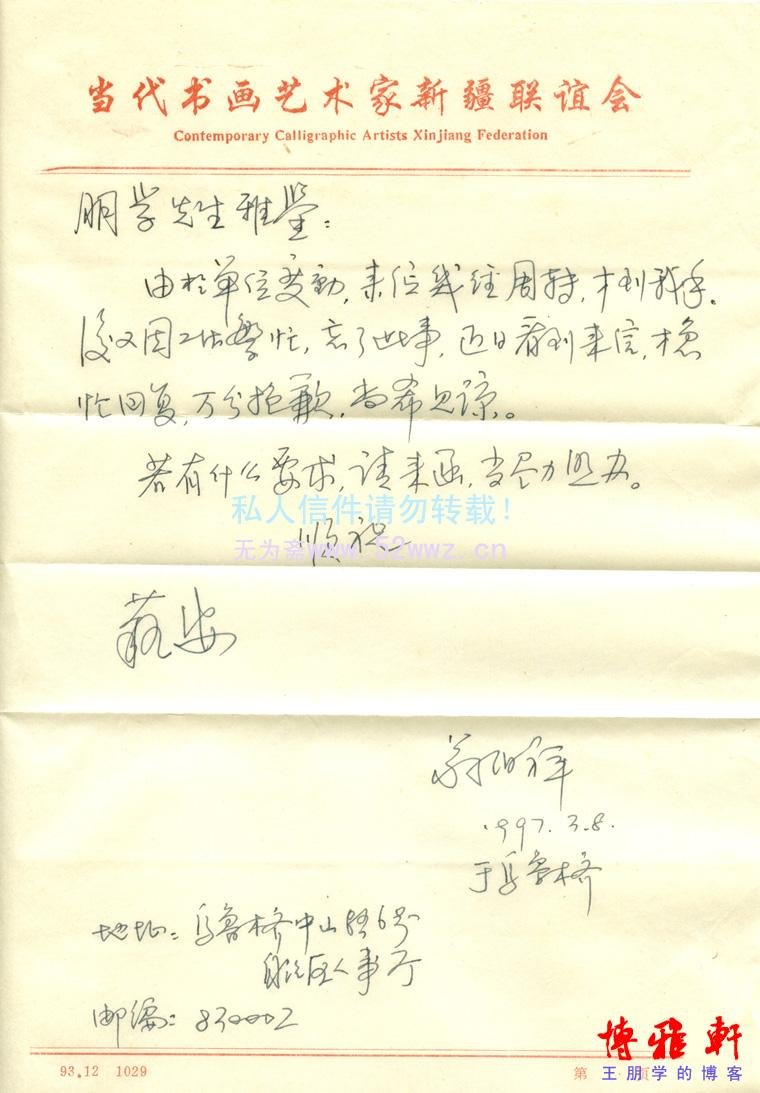 当代书画艺术家新疆联谊会
Contemporary Calligraphic Artists Xinjiang Federation
朋学先生雅鉴：
由於单位变動，来信几经周转，才到我手。
後又因工作繁忙，忘了此事，近日看到来信，才急
忙回复，万分抱歉，尚希见谅。
若有什么要求，请来函，当尽力照办。
私人信件请勿转载！
顺祝
无为斋www.52wwz.cn
安
1997.3.8.
于乌鲁木齐
地址：乌鲁木齐中山路6号
自治区人事厅
邮编：830002
博雅軒
93.12 1029
第 页
王朋学的博客